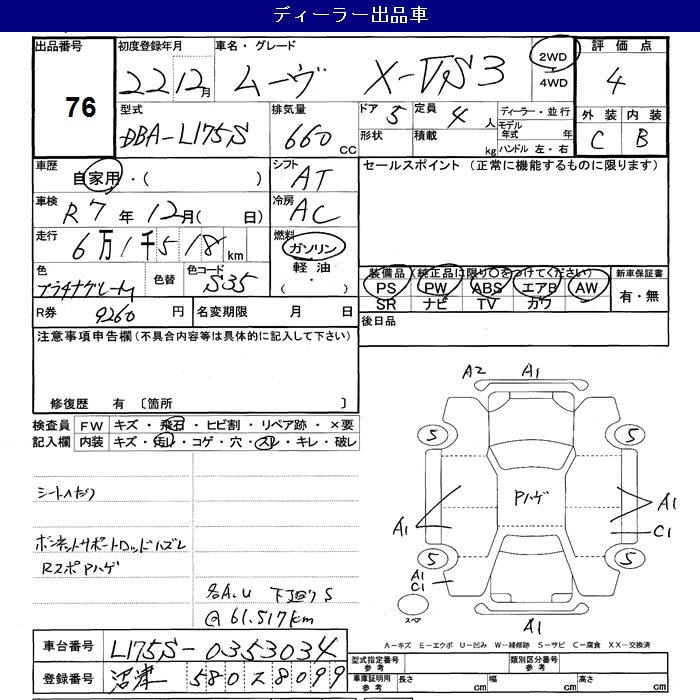 ディーラー出品車
出品番号 76
初度登録年月 22 12月
車名・グレード ムーヴ X-VS3
2WD 4WD
評価点 4
型式 DBA-L175S
排気量 660 CC
ドア 5 定員 4 人
形状 積載 kg
ディーラー・並行
モデル年式 年
ハンドル 左・右
外装 内装
C B
車歴 自家用・( )
シフト AT
セールスポイント (正常に機能するものに限ります)
車検 R7 年 12月( 日)
冷房 AC
走行 6万1千518 km
燃料 ガソリン 軽油 ( ・ )
色 プラチナグレーM 色替 色コード S35
装備品(純正品に限り○をつけてください) 新車保証書
PS PW ABS エアB AW 有・無
SR ナビ TV カワ
R券 9260 円 名変期限 月 日
後日品
注意事項申告欄(不具合内容等は具体的に記入して下さい)
修復歴 有 〔箇所 〕
検査員記入欄
FW キズ・飛石・ヒビ割・リペア跡・×要
内装 キズ・汚レ・コゲ・穴・スレ・キレ・破レ
シートヘタリ
ボンネットサポートロッドハズレ
Rスポ Pハゲ
下廻りS
@ 61.517km
A2 A1
5 5
A1 Pハゲ A1
C1
5 5
A1
C1
スペア
A1
A-キズ E-エクボ U-凹み W-補修跡 S-サビ C-腐食 XX-交換済
車台番号 L175S-0353034
登録番号 沼津 580 す 8099
型式指定番号 参考 類別区分番号 参考
車庫証明用 参考 長さ cm 幅 cm 高さ cm